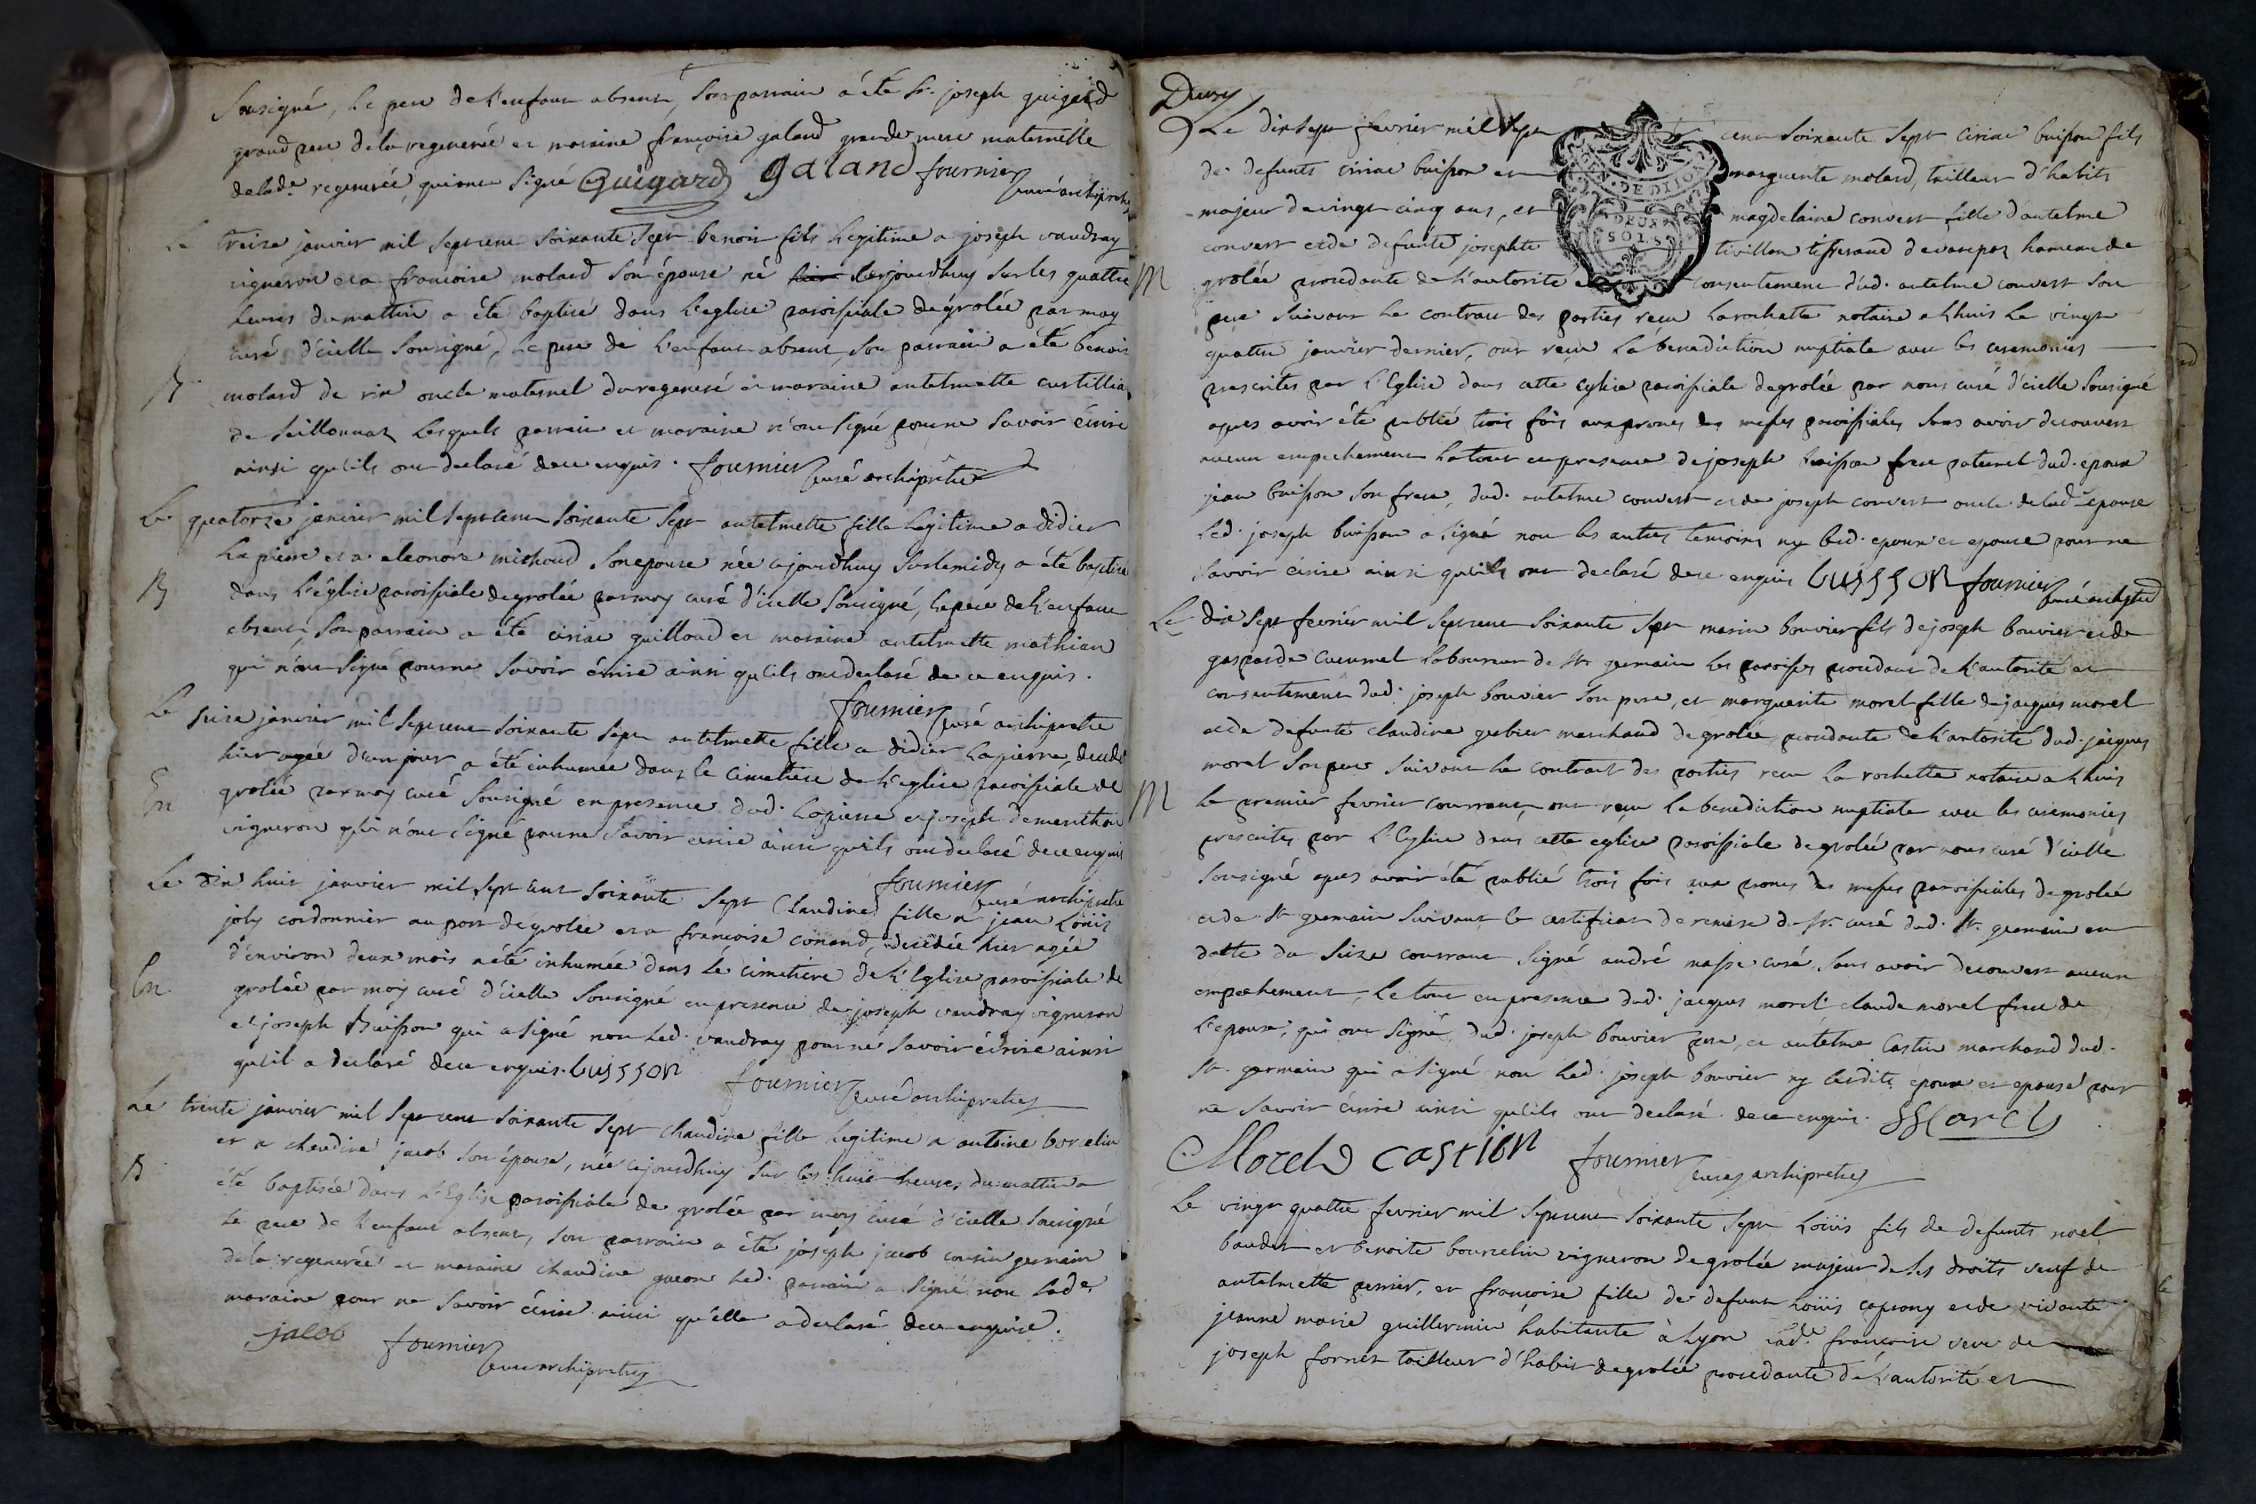 sousigné, le pere de l'enfant absent, son parrain a été Sr. joseph guigard
grand pere de la regenerée et maraine françoise galand grande mere maternelle
de lade. regenerée, qui ont signé Guigard galand fournier
curé archiprêtre
Le treize janvier mil sept cent soixante sept benoit fils legitime a joseph vaudray
vigneron et a françoise molard son épouse né cejourdhuy sur les quattre
heures du mattin a été baptisé dans l'eglise paroissiale de grolée par moy
curé d'icelle sousigné, le pere de l'enfant absent, son parrain a été benoit
B
molard de rix oncle maternel du regeneré et maraine antelmette
de seillonnaz lesquels parrain et maraine n'ont signé pour ne savoir écrire
ainsi qu'ils ont declaré de ce enquis. fournier curé archiprêtre
Le quatorze janvier mil sept cent soixante sept antelmette fille legitime a didier
lapierre et a eleonore michoud son epouse née cejourdhuy sur le midy a été baptisée
B
dans l'église paroissiale de grolée par moy curé d'icelle sousigné, le pere de l'enfant
absent, son parrain a été ciriac guilloud et maraine antelmette mathian
qui n'ont signé pour ne savoir écrire ainsi qu'ils ont declaré de ce enquis.
fournier curé archiprêtre
Le seize janvier mil sept cent soixante sept antelmette fille a didier lapierre, decedée
hier agée d'un jour a été inhumée dans le cimetiere de l'eglise paroissiale de
En
grolée par moy curé sousigné en presence dud. lapierre et joseph dementhon
vigneron qui n'ont signé pour ne savoir écrire ainsi qu'ils ont declaré de ce enquis
fournier curé archiprêtre
Le dix huit janvier mil sept cent soixante sept Claudine fille a jean Loüis
joly cordonnier au port de grolée et a francoise conand, decedée hier agée
d'environ deux mois a été inhumée dans le cimetiere de l'Eglise paroissiale de
En
grolée par moy curé d'icelle sousigné en presence de joseph vaudray vigneron
et joseph Buisson qui a signé non led. vaudray pour ne savoir écrire ainsi
qu'il a declaré de ce enquis. buisson fournier curé archiprêtre
Le trente janvier mil sept cent soixante sept claudine fille legitime a antoine borcelin
et a claudine jacob son épouse, née cejourdhuy sur les huit heures du mattin a
B
été baptisée dans l'Eglise paroissiale de grolée par moy curé d'icelle sousigné
le pere de l'enfant absent, son parrain a été joseph jacob cousin germain
de la regenerée et maraine claudine led. parrain a signé non lade.
maraine pour ne savoir écrire ainsi qu'elle a declaré de ce enquise.
jacob fournier
curé archiprêtre
GEN. DE DIJON
DEUX
SOLS
Le dix sept fevrier mil sept cent soixante sept ciriac buisson fils
de defunts ciriac buisson et marguerite molard, tailleur d'habits
majeur de vingt cinq ans, et magdelaine convert fille d'antelme
convert et de defunte josephte tivillon tisserand de hameau de
M
grolée procedante de l'autorité et consentement dud. antelme convert son
pere suivant le contract des parties reçu larochette notaire a lhuis le vingt
quattre janvier dernier, ont reçu la benediction nuptiale avec les ceremonies
prescrites par l'Eglise dans cette eglise paroissiale de grolée par nous curé d'icelle sousigné
apres avoir été publié trois fois aux prones des messes paroissiales sans avoir decouvert
aucun empechement le tout en presence de joseph buisson frere paternel dud. epoux
jean buisson son frere, dud. antelme convert et de joseph convert oncle de lade epouse
led. joseph buisson a signé non les autres temoins ny led. epoux et epouse pour ne
savoir écrire ainsi qu'ils ont declaré de ce enquis buisson fournier curé archiprêtre
Le dix sept fevrier mil sept cent soixante sept marin bouvier fils de joseph bouvier et de
gasparde cucumel laboureur de St germain les paroisses procedant de l'autorité et
consentement dud. joseph bouvier son pere, et marguerite morel fille de jacques morel
et de defunte claudine gerbier marchand de grolée, procedante de l'autorité dud. jacques
morel son pere suivant le contract des parties reçu la rochette notaire a lhuis
M
le premier fevrier courrant, ont reçu la benediction nuptiale avec les ceremonies
prescrites par l'Eglise dans cette eglise paroissiale de grolée par nous curé d'icelle
sousigné apres avoir été publié trois fois aux prones des messes paroissiales de grolée
et de St germain suivant le certificat de remise du Sr. curé dud. St. germain en
datte du seize courrant signé andré masse curé, sans avoir decouvert aucun
empechement, le tout en presence dud. jacques morel, claude morel frere de
l'epouse, qui ont signé, dud. joseph bouvier pere, et antelme Castin marchand dud.
St. germain qui a signé non led. joseph bouvier ny lesdits époux et epouse pour
ne savoir écrire ainsi qu'ils ont declaré de ce enquis.
Morel castion fournier curé archiprêtre
Le vingt quattre fevrier mil sept cent soixante sept Loüis fils de defunts noel
baudet et benoite bourcelin vigneron de grolée majeur de ses droits veuf de
antelmette perrier, et françoise fille de defunt Loüis caprony et de vivante
jeanne marie guillermin habitante à Lyon lade. francoise veve de
joseph fornet tailleur d'habit de grolée procedante de l'autorité et